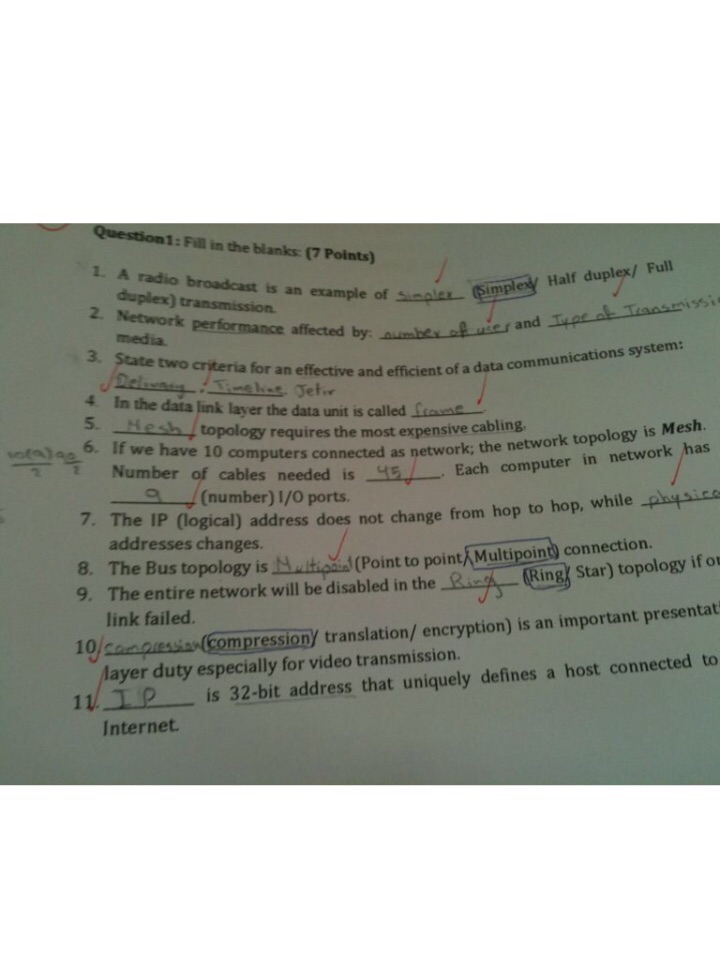 Question1: Fill in the blanks: (7 Points)
1. A radio broadcast is an example of simplex (Simplex/ Half duplex/ Full
duplex) transmission.
2. Network performance affected by: number of user and Type of Transmissi
media.
3. State two criteria for an effective and efficient of a data communications system:
Delivary , Timeline. Jetir
4. In the data link layer the data unit is called frame.
5. Mesh topology requires the most expensive cabling.
6. If we have 10 computers connected as network; the network topology is Mesh.
10(9) 90
2 2
Number of cables needed is 45. Each computer in network has
9 (number) I/O ports.
7. The IP (logical) address does not change from hop to hop, while physica
addresses changes.
8. The Bus topology is Multipoint (Point to point/ Multipoint) connection.
9. The entire network will be disabled in the Ring (Ring/ Star) topology if o
link failed.
10. compression (compression/ translation/ encryption) is an important presentat
layer duty especially for video transmission.
11. IP is 32-bit address that uniquely defines a host connected to
Internet.